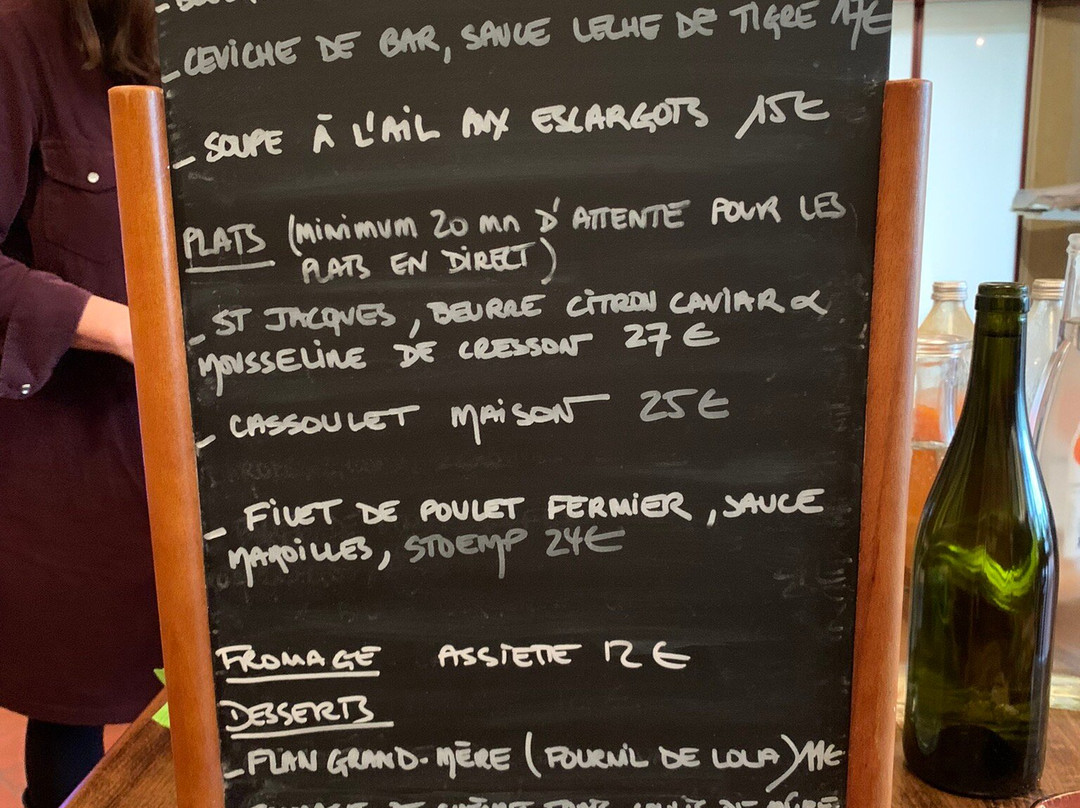 - CEVICHE DE BAR, SAUCE LECHE DE TIGRE 17€
- SOUPE À L'AIL AUX ESCARGOTS 15€
PLATS (minimum 20 mn D'ATTENTE POUR LES
PLATS EN DIRECT)
- ST JACQUES, BEURRE CITRON CAVIAR &
MOUSSELINE DE CRESSON 27€
- CASSOULET MAISON 25€
- FILET DE POULET FERMIER, SAUCE
MAROILLES, STOEMP 24€
FROMAGE ASSIETTE 12€
DESSERTS
- FLAN GRAND-MÈRE (FOURNIL DE LOLA) 11€